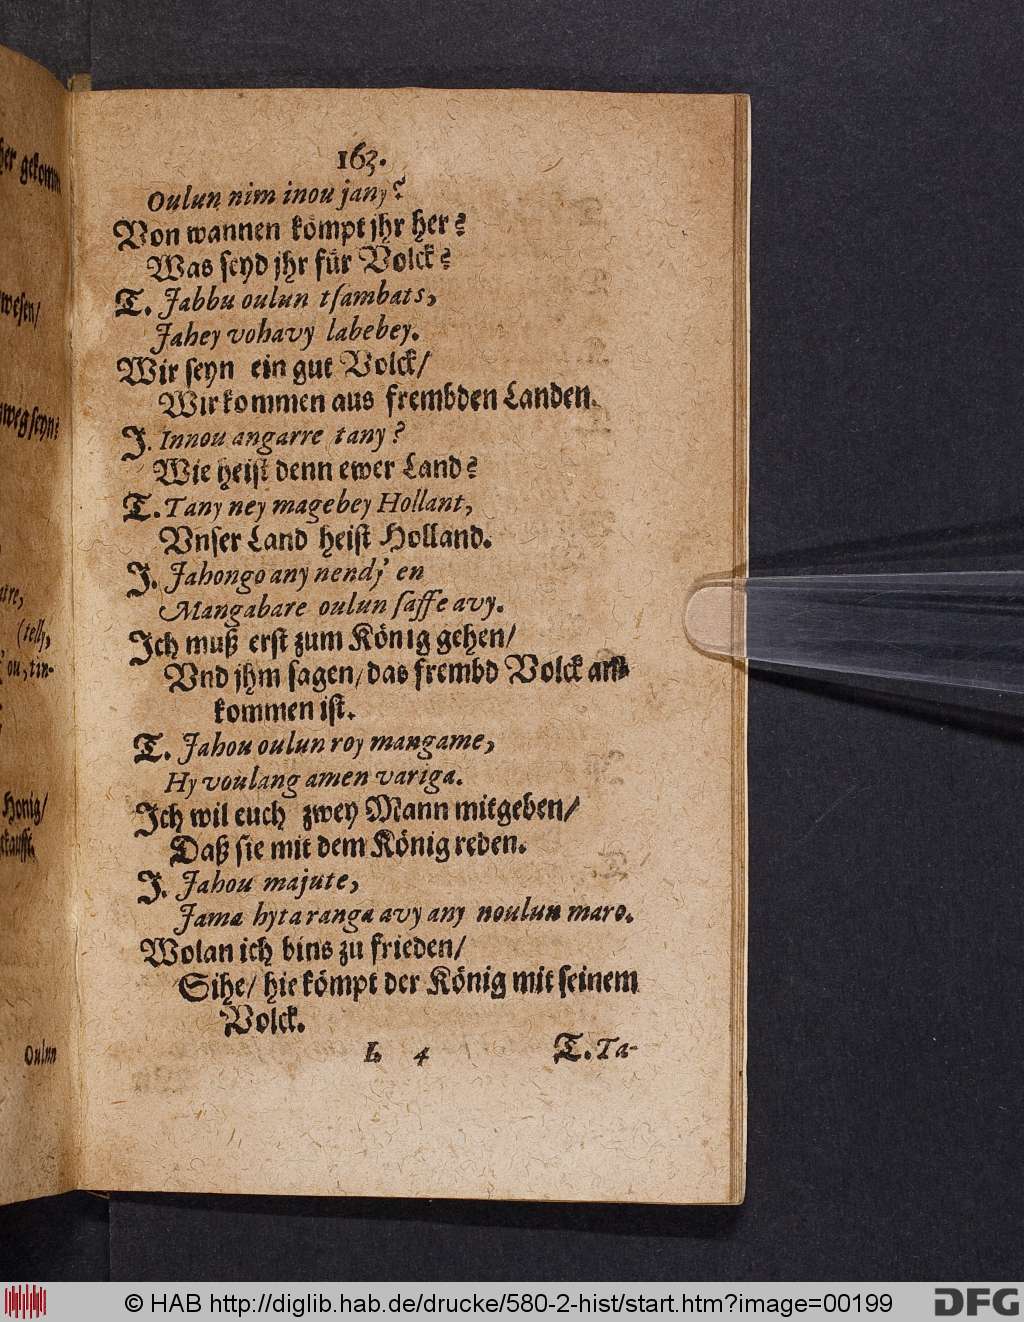 163.
Oulun nim inou jany?
Von wannen kömpt jhr her?
Was seyd jhr für Volck?
T. Jabbu oulun tsambats,
Jahey vohavy labebey.
Wir seyn ein gut Volck/
Wir kommen aus frembden Landen.
J. Innou angarre tany?
Wie heist denn ewer Land?
T. Tany ney magebey Hollant,
Vnser Land heist Holland.
J. Jahongo any nendj' en
Mangabare oulun saffe avy.
Ich muß erst zum König gehen/
Vnd jhm sagen/ das frembd Volck an-
kommen ist.
T. Jahou oulun roy mangame,
Hy voulang amen variga.
Ich wil euch zwey Mann mitgeben/
Daß sie mit dem König reden.
J. Jahou majute,
Jama hyta ranga avy any noulun maro.
Wolan ich bins zu frieden/
Sihe/ hie kömpt der König mit seinem
Volck.
L 4 T. Ta-
her gekomm
wesen/
weg seyn?
(telj,
ou, tin-
Honig/
Oulun
© HAB http://diglib.hab.de/drucke/580-2-hist/start.htm?image=00199
DFG